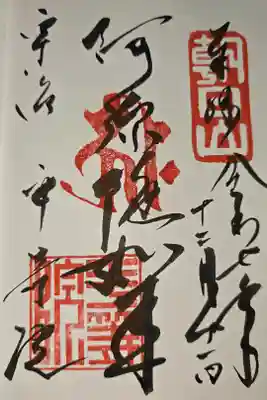 奉拝
朝日山
令和七年
十二月
阿弥陀如来
宇治 平等院